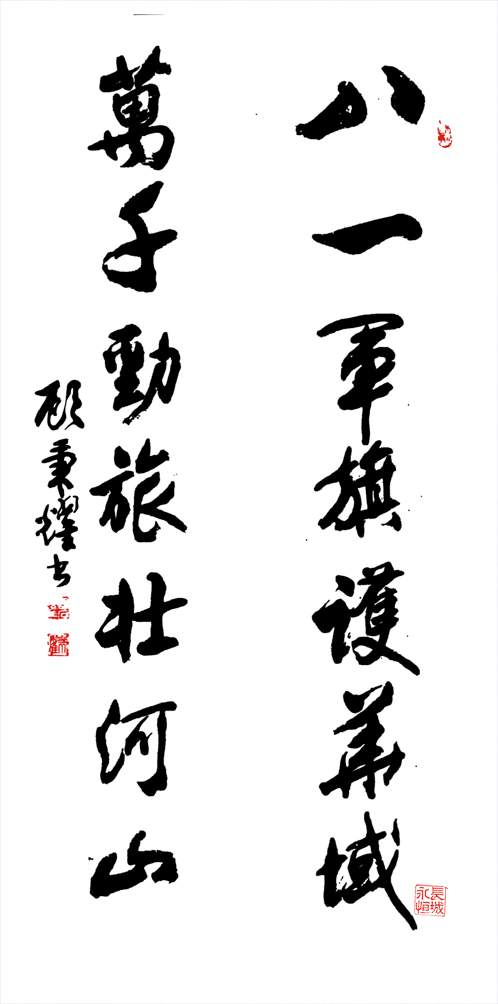 八一軍旗護華域
萬千勁旅壯河山
顾秉耀书
長城永恒